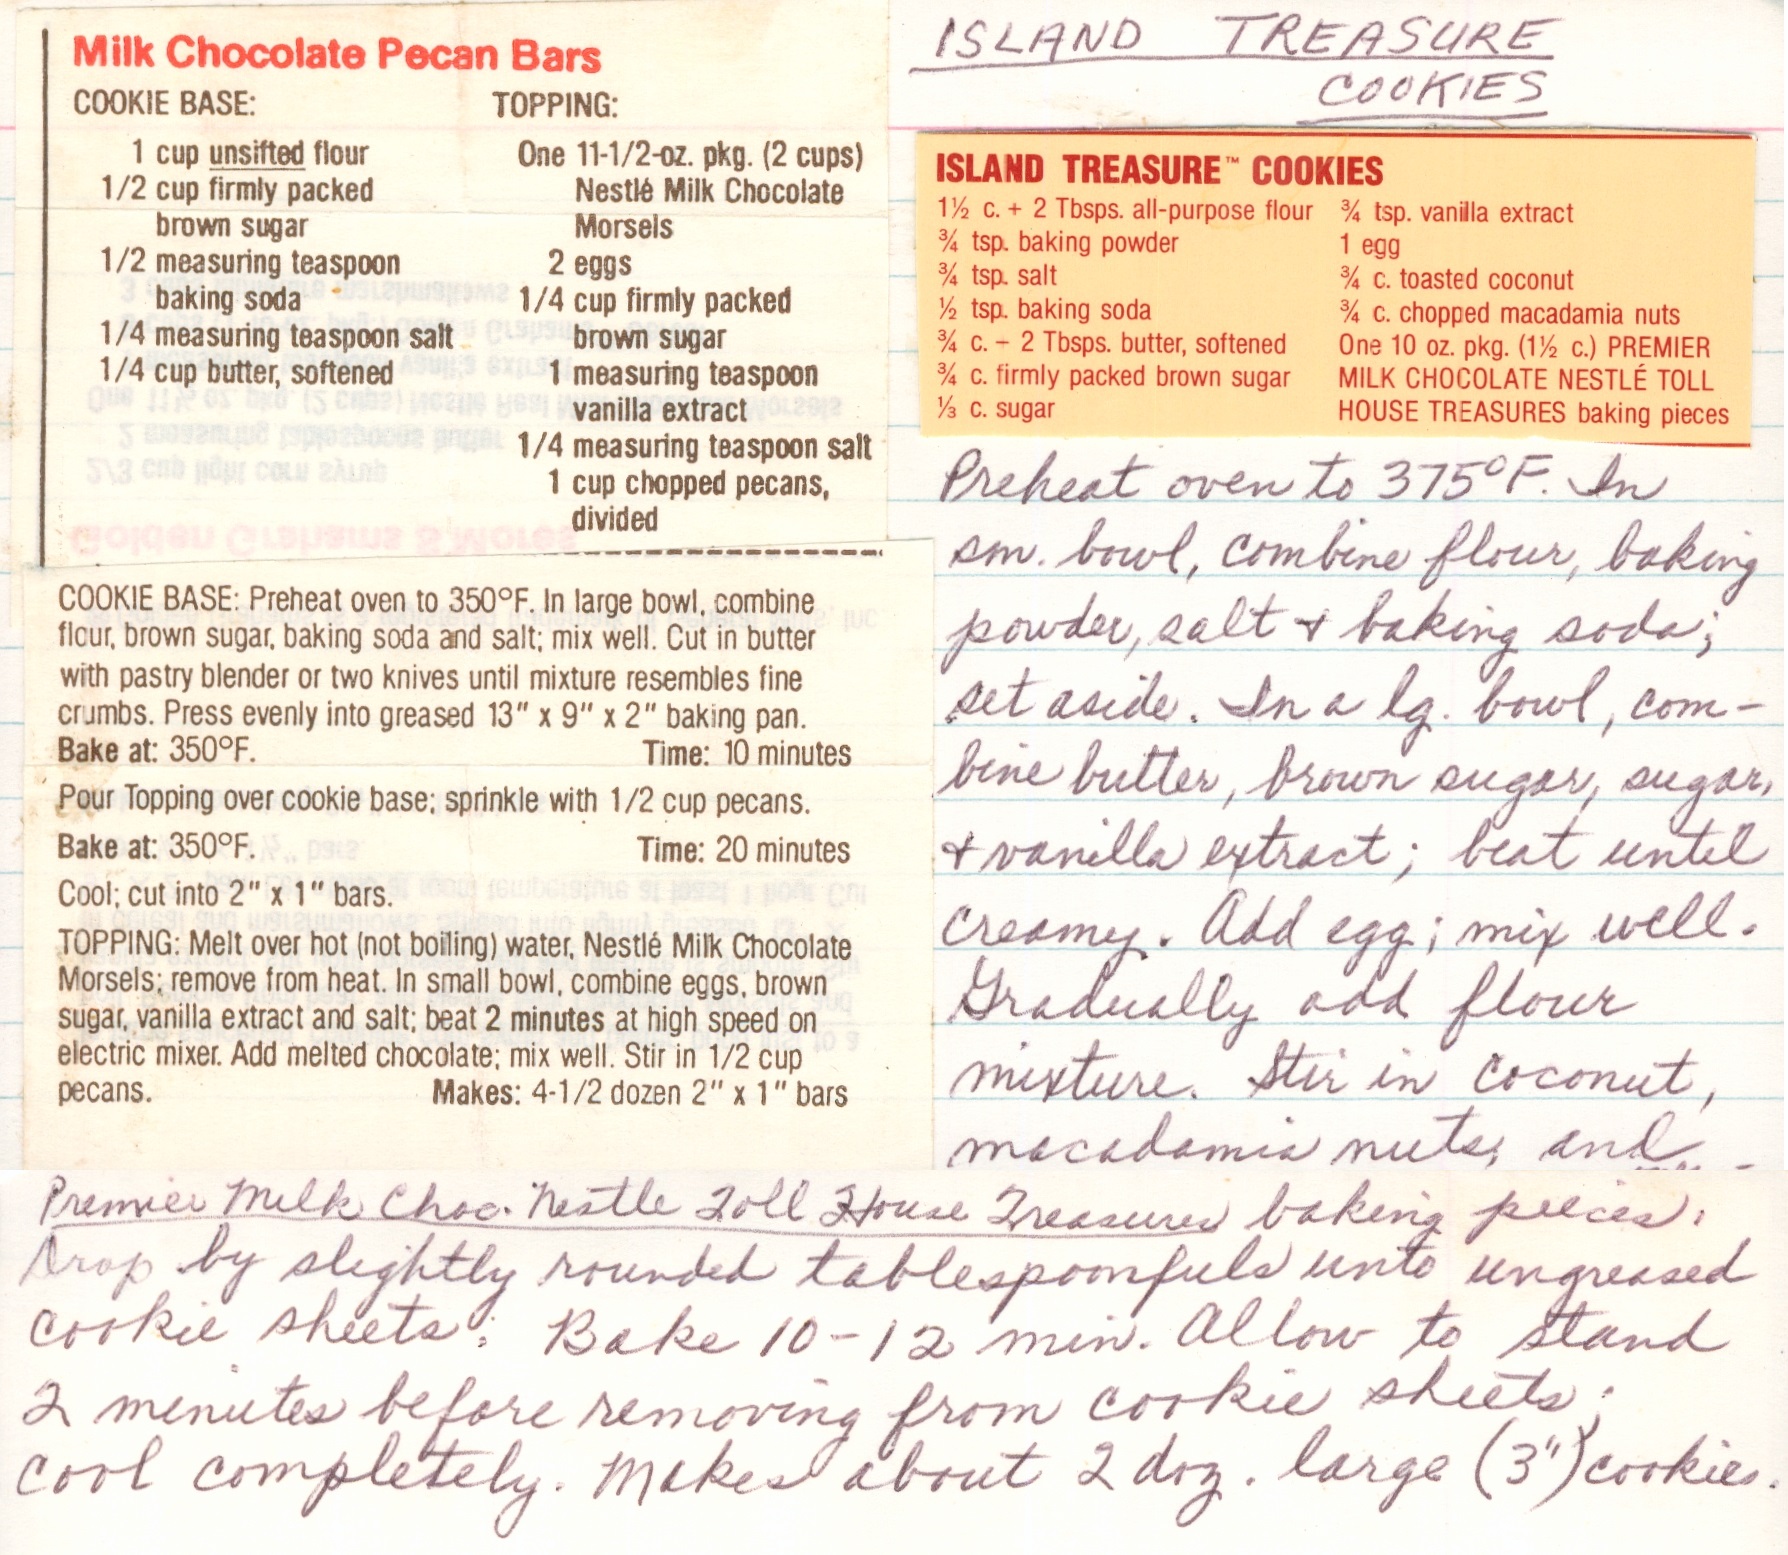 Milk Chocolate Pecan Bars
COOKIE BASE:
1 cup unsifted flour
1/2 cup firmly packed
brown sugar
1/2 measuring teaspoon
baking soda
1/4 measuring teaspoon salt
1/4 cup butter, softened
TOPPING:
One 11-1/2-oz. pkg. (2 cups)
Nestlé Milk Chocolate
Morsels
2 eggs
1/4 cup firmly packed
brown sugar
1 measuring teaspoon
vanilla extract
1/4 measuring teaspoon salt
1 cup chopped pecans,
divided
COOKIE BASE: Preheat oven to 350°F. In large bowl, combine
flour, brown sugar, baking soda and salt; mix well. Cut in butter
with pastry blender or two knives until mixture resembles fine
crumbs. Press evenly into greased 13" x 9" x 2" baking pan.
Bake at: 350°F. Time: 10 minutes
Pour Topping over cookie base; sprinkle with 1/2 cup pecans.
Bake at: 350°F. Time: 20 minutes
Cool; cut into 2" x 1" bars.
TOPPING: Melt over hot (not boiling) water, Nestlé Milk Chocolate
Morsels; remove from heat. In small bowl, combine eggs, brown
sugar, vanilla extract and salt; beat 2 minutes at high speed on
electric mixer. Add melted chocolate; mix well. Stir in 1/2 cup
pecans. Makes: 4-1/2 dozen 2" x 1" bars
ISLAND TREASURE
COOKIES
ISLAND TREASURE™ COOKIES
1½ c. + 2 Tbsps. all-purpose flour
¾ tsp. baking powder
¾ tsp. salt
½ tsp. baking soda
¾ c. - 2 Tbsps. butter, softened
¾ c. firmly packed brown sugar
⅓ c. sugar
¾ tsp. vanilla extract
1 egg
¾ c. toasted coconut
¾ c. chopped macadamia nuts
One 10 oz. pkg. (1½ c.) PREMIER
MILK CHOCOLATE NESTLÉ TOLL
HOUSE TREASURES baking pieces
Preheat oven to 375°F. In
sm. bowl, combine flour, baking
powder, salt + baking soda;
set aside. In a lg. bowl, com-
bine butter, brown sugar, sugar,
+ vanilla extract; beat until
creamy. Add egg; mix well.
Gradually add flour
mixture. Stir in coconut,
macadamia nuts, and
Premier Milk Choc. Nestle Toll House Treasures baking pieces.
Drop by slightly rounded tablespoonfuls unto ungreased
cookie sheets. Bake 10-12 min. Allow to stand
2 minutes before removing from cookie sheets;
cool completely. Makes about 2 doz. large (3") cookies.